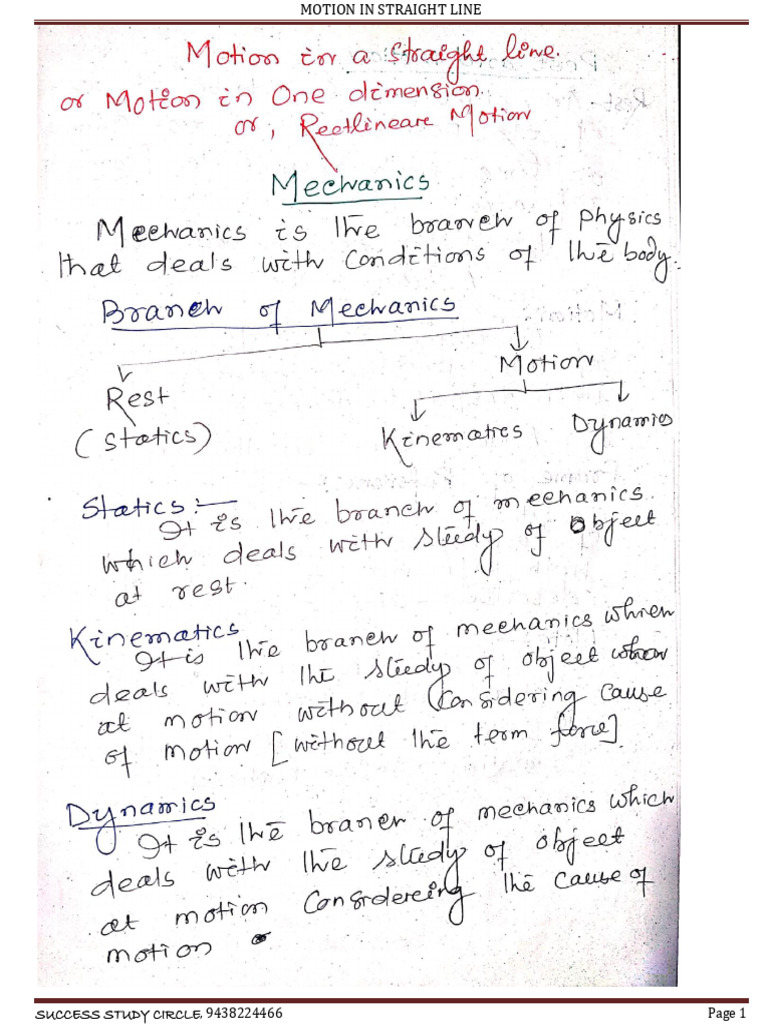 MOTION IN STRAIGHT LINE
Motion in a straight line.
or Motion in One dimension.
or, Rectlineare Motion
Mechanics
Mechanics is the branch of physics
that deals with conditions of the body.
Branch of Mechanics
Motion
Rest
(Statics)
Kinematics Dynamics
Statics:-
It is the branch of mechanics
which deals with study of object
at rest.
Kinematics
It is the branch of mechanics which
deals with the study of object when
at motion without Considering cause
of motion [without the term force]
Dynamics
It is the branch of mechanics which
deals with the study of object
at motion considereing the cause of
motion
SUCCESS STUDY CIRCLE, 9438224466 Page 1